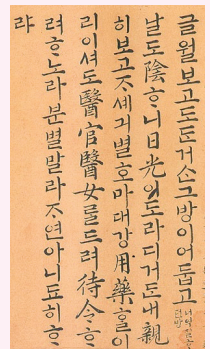 글월보고도ᄃᆞᆫ거ᄉᆞᆫ그방이어둡고
너역질ᄒᆞ
던방
날도陰ᄒᆞ니日光이도라디거ᄃᆞᆫ내親
히보고ᄌᆞ셰긔별호마대강用藥ᄒᆞᆯ이
리이셔도醫官醫女ᄅᆞᆯ드려待令ᄒᆞ
려ᄒᆞ노라분별말라ᄌᆞ연아니됴히ᄒᆞ
랴